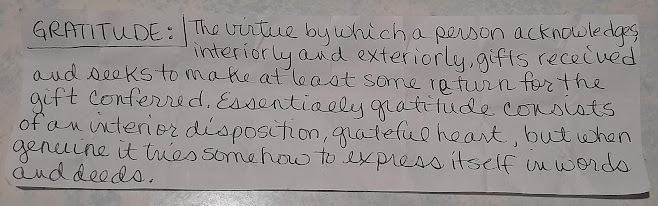 GRATITUDE: The virtue by which a person acknowledges,
interiorly and exteriorly, gifts received
and seeks to make at least some return for the
gift conferred. Essentially gratitude consists
of an interior disposition, grateful heart, but when
genuine it tries somehow to express itself in words
and deeds.